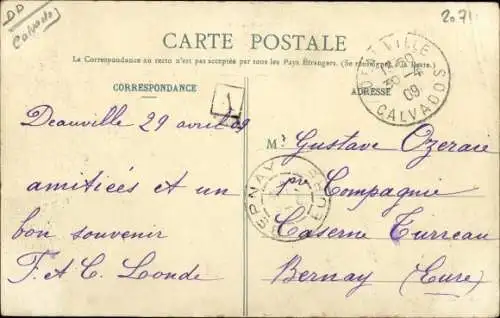 DP
Calvados
2071
CARTE POSTALE
La Correspondance au recto n'est pas acceptée par tous les Pays Étrangers. (Se renseigner à la Poste.)
CORRESPONDANCE
ADRESSE
DEAUVILLE
30-4
09
CALVADOS
1
Deauville 29 avril 09
amitiées et un
bon souvenir
F. et C. Londe
BERNAY
EURE
M. Gustave Ozeraie
1re Compagnie
Caserne Turreau
Bernay (Eure)